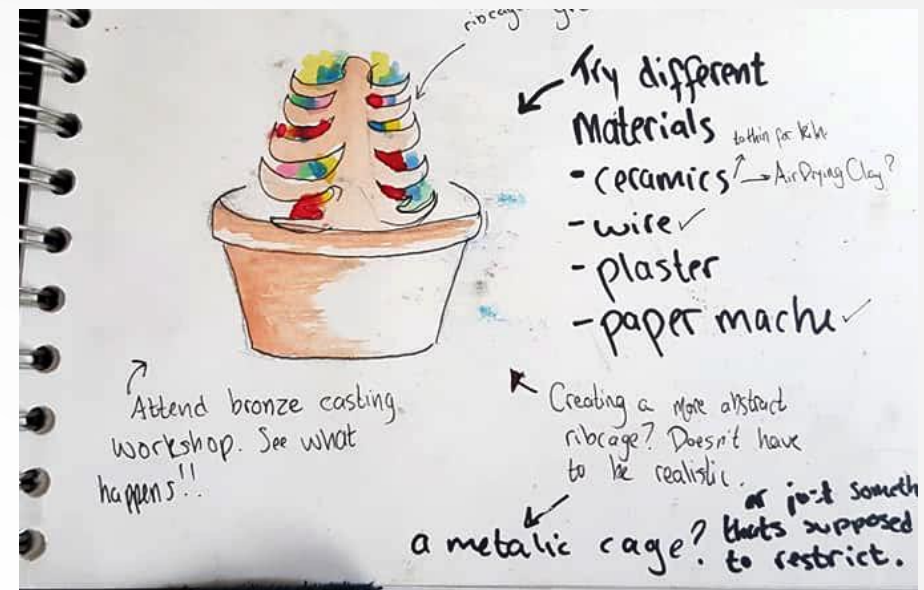 ribcage
Try different
Materials
to thin for kiln
- ceramics → Air Drying Clay?
- wire ✓
- plaster
- paper mache ✓
Attend bronze casting
workshop. See what
happens!!
Creating a more abstract
ribcage? Doesn't have
to be realistic.
a metalic cage?
or just
thats supposed
to restrict.